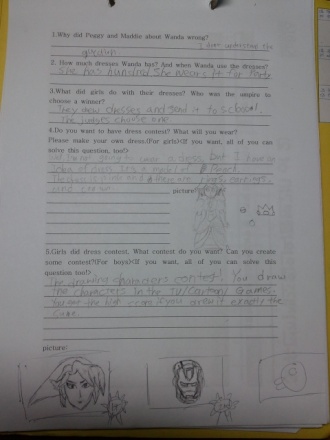 1.Why did Peggy and Maddie about Wanda wrong?
I don't understand the
question.
2. How much dresses Wanda has? And when Wanda use the dresses?
She has hundred. She wears it for party
3.What did girls do with their dresses? Who was the empire to
choose a winner?
They draw dresses and send it to school.
The judges choose one.
4.Do you want to have dress contest? What will you wear?
Please make your own dress.(For girls)<If you want, all of you can
solve this question, too!>
going to wear a dress, but I have
and crown.
picture
5.Girls did dress contest, What contest do you want? Can you create
some contest?(For boys)<If you want, all of you can solve this
question too!>
The drawing characters contest! You draw
the characters in the TV/Cartoon/Games.
You get the high score if you draw it exactly the
same.
picture: